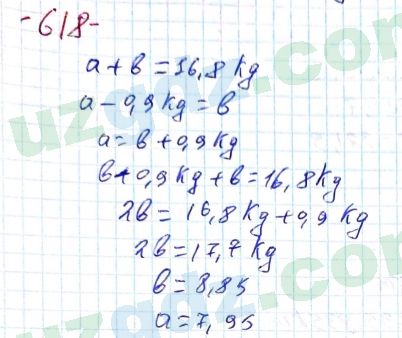 -618-
a + b = 16,8 kg
a - 0,9 kg = b
a = b + 0,9 kg
b + 0,9 kg + b = 16,8 kg
2b = 16,8 kg + 0,9 kg
2b = 17,7 kg
b = 8,85
a = 7,95